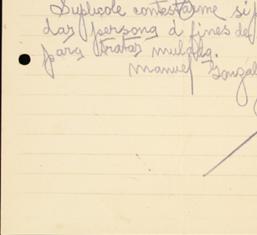 Suplicole contestarme si p
das persona à fines de
para tratar
Manuel Gonzal